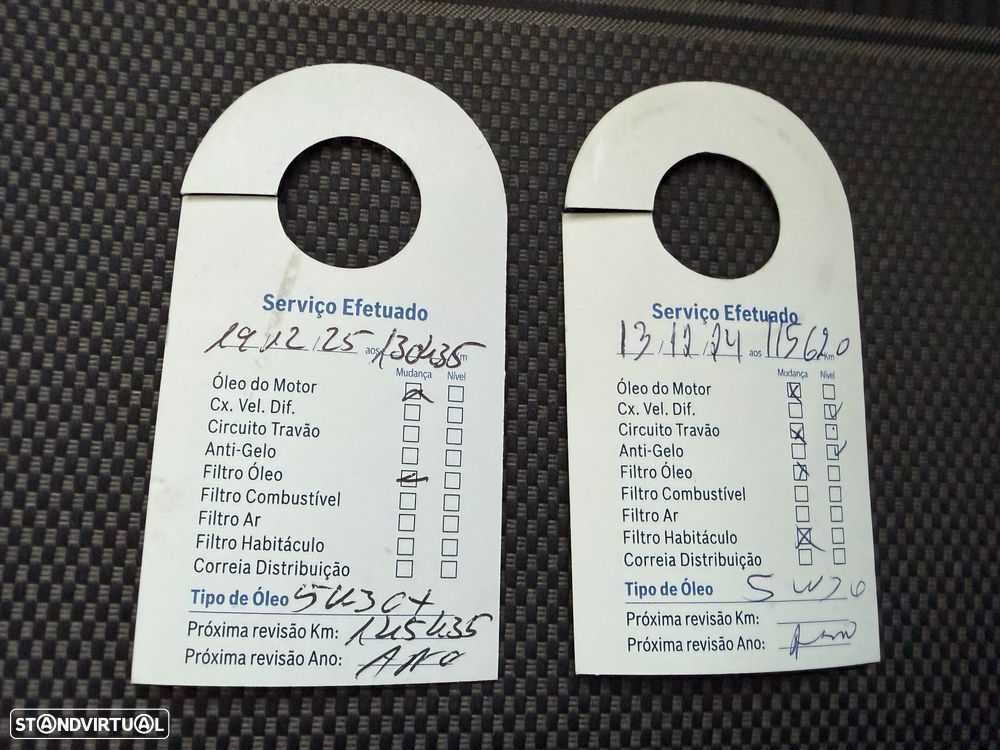 Serviço Efetuado
19.12.25 aos 130435 Km
Mudança Nível
Óleo do Motor
Cx. Vel. Dif.
Circuito Travão
Anti-Gelo
Filtro Óleo
Filtro Combustível
Filtro Ar
Filtro Habitáculo
Correia Distribuição
Tipo de Óleo
Próxima revisão Km:
Próxima revisão Ano:
Serviço Efetuado
13.12.24 aos 115620 Km
Mudança Nível
Óleo do Motor
Cx. Vel. Dif.
Circuito Travão
Anti-Gelo
Filtro Óleo
Filtro Combustível
Filtro Ar
Filtro Habitáculo
Correia Distribuição
Tipo de Óleo
Próxima revisão Km:
Próxima revisão Ano:
STANDVIRTUAL